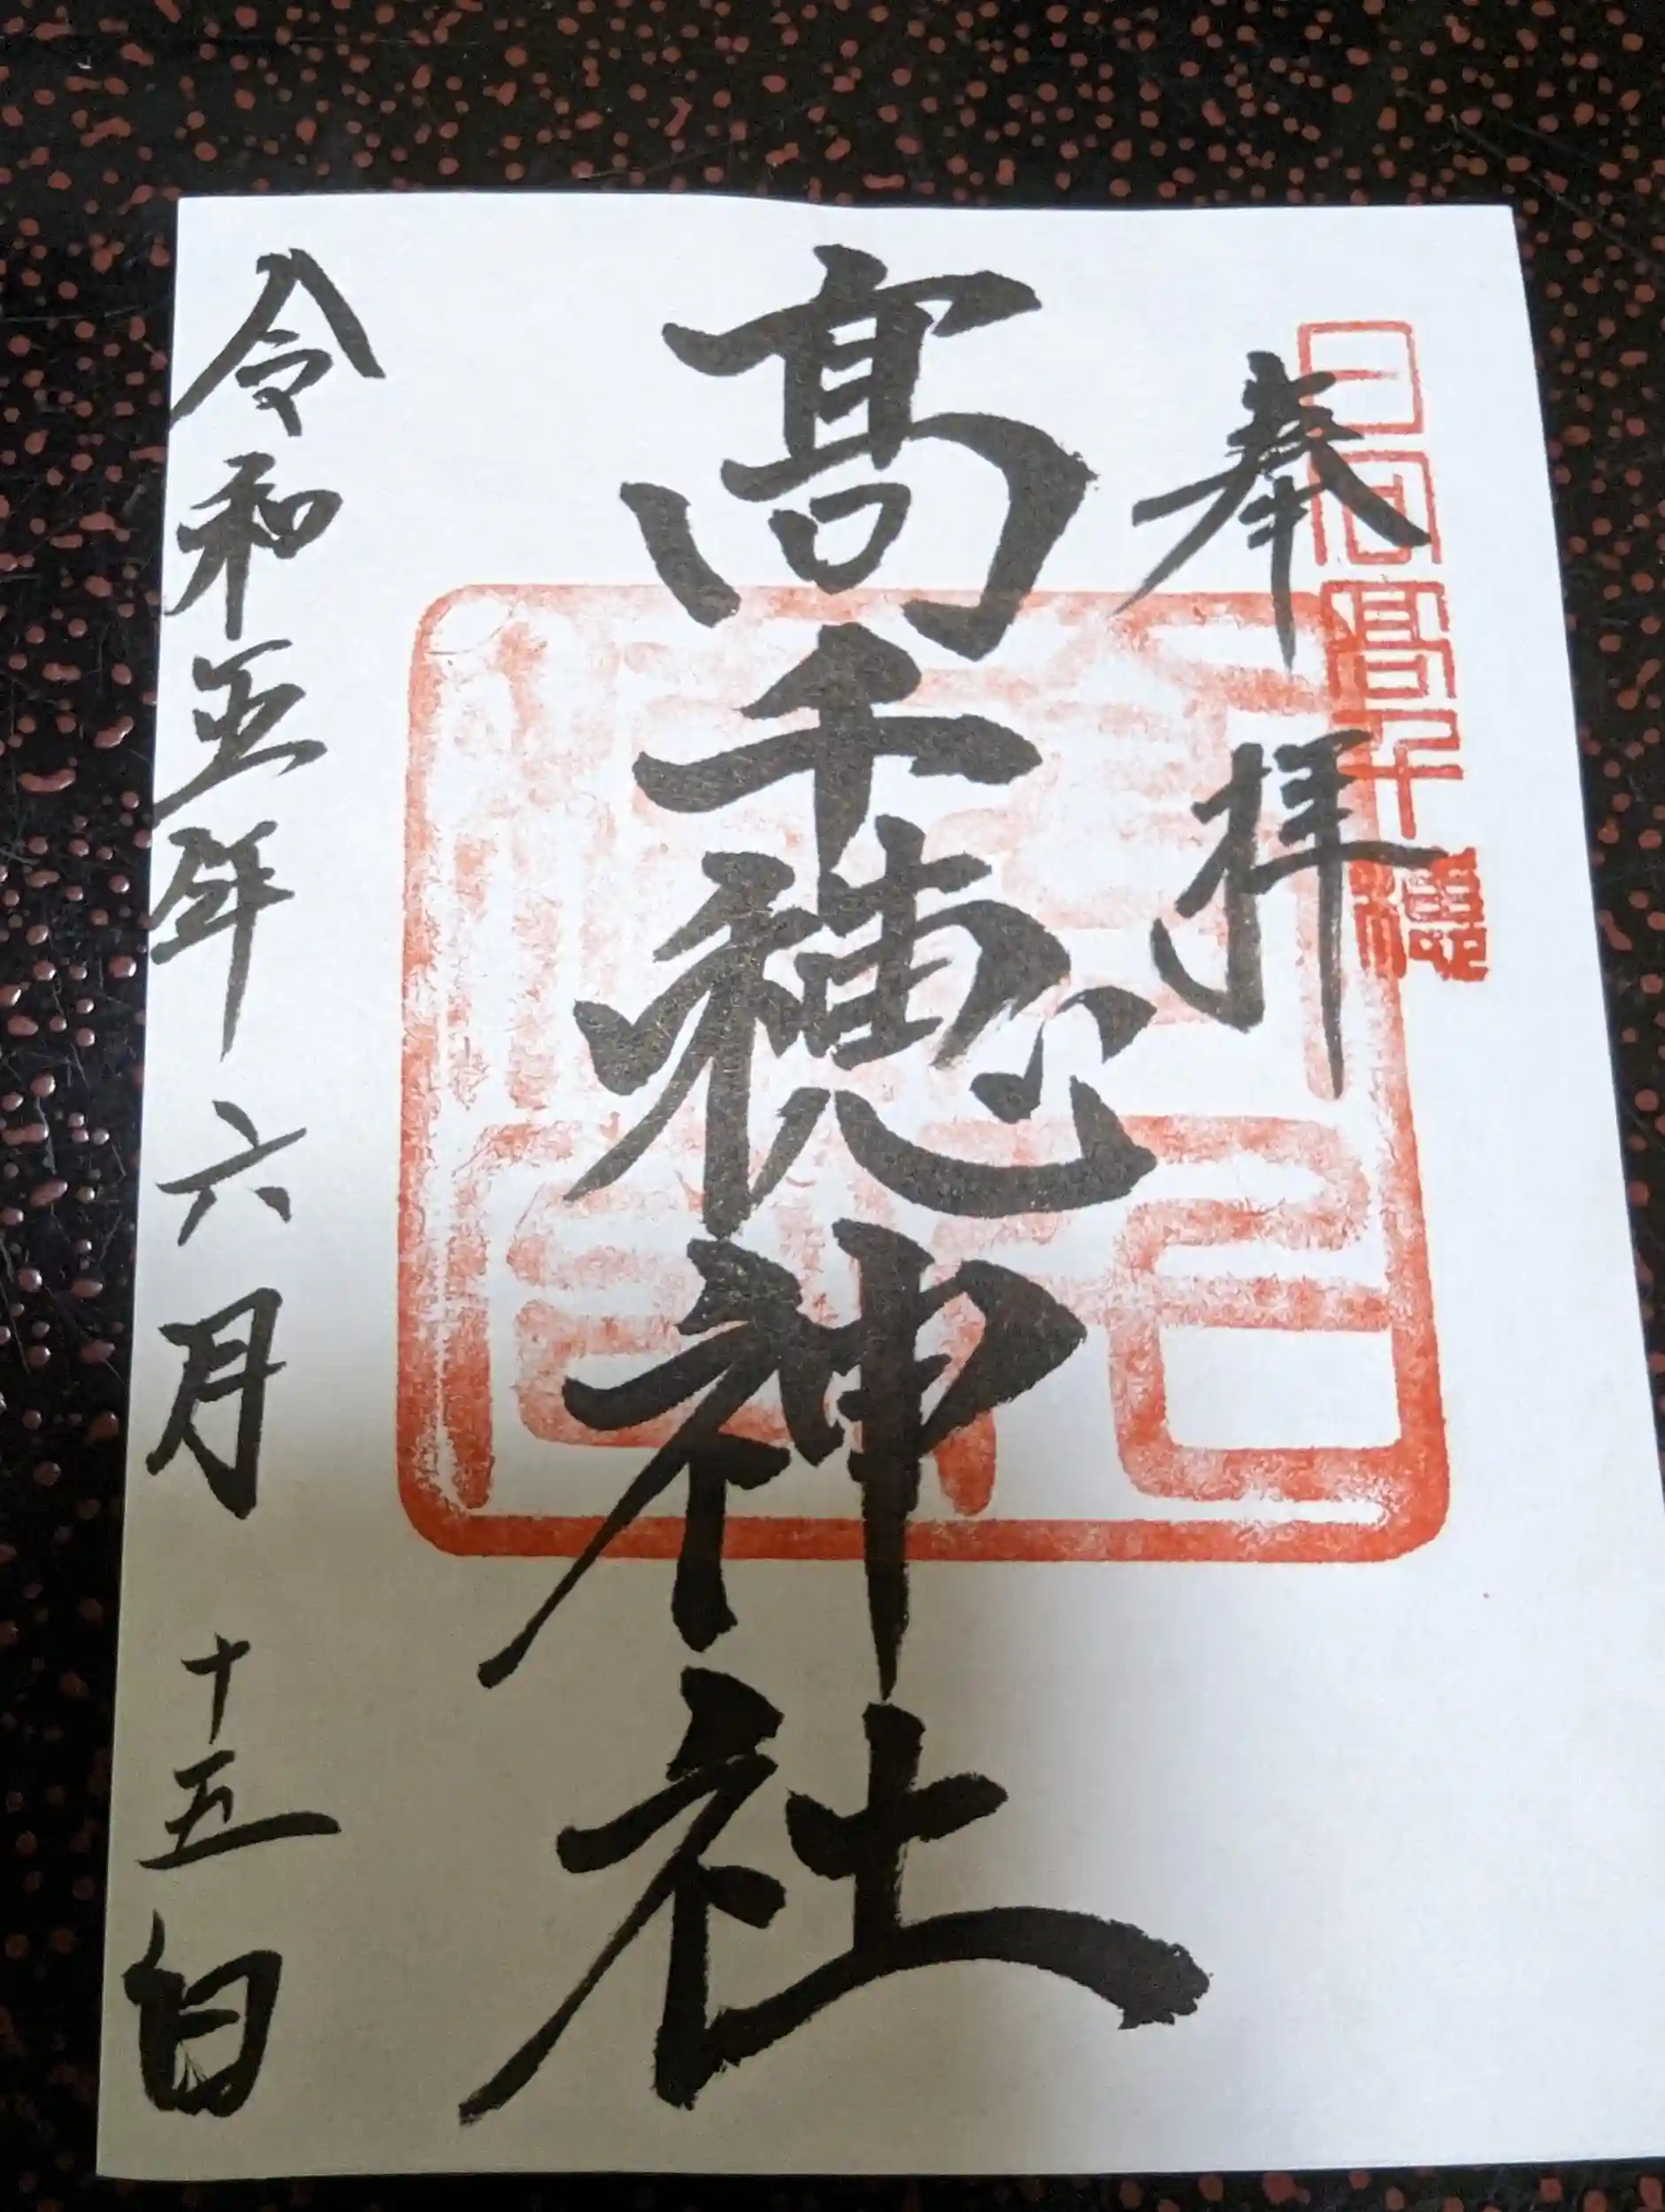 日向高千穂
奉拝
髙千穂神社
令和五年六月十五日